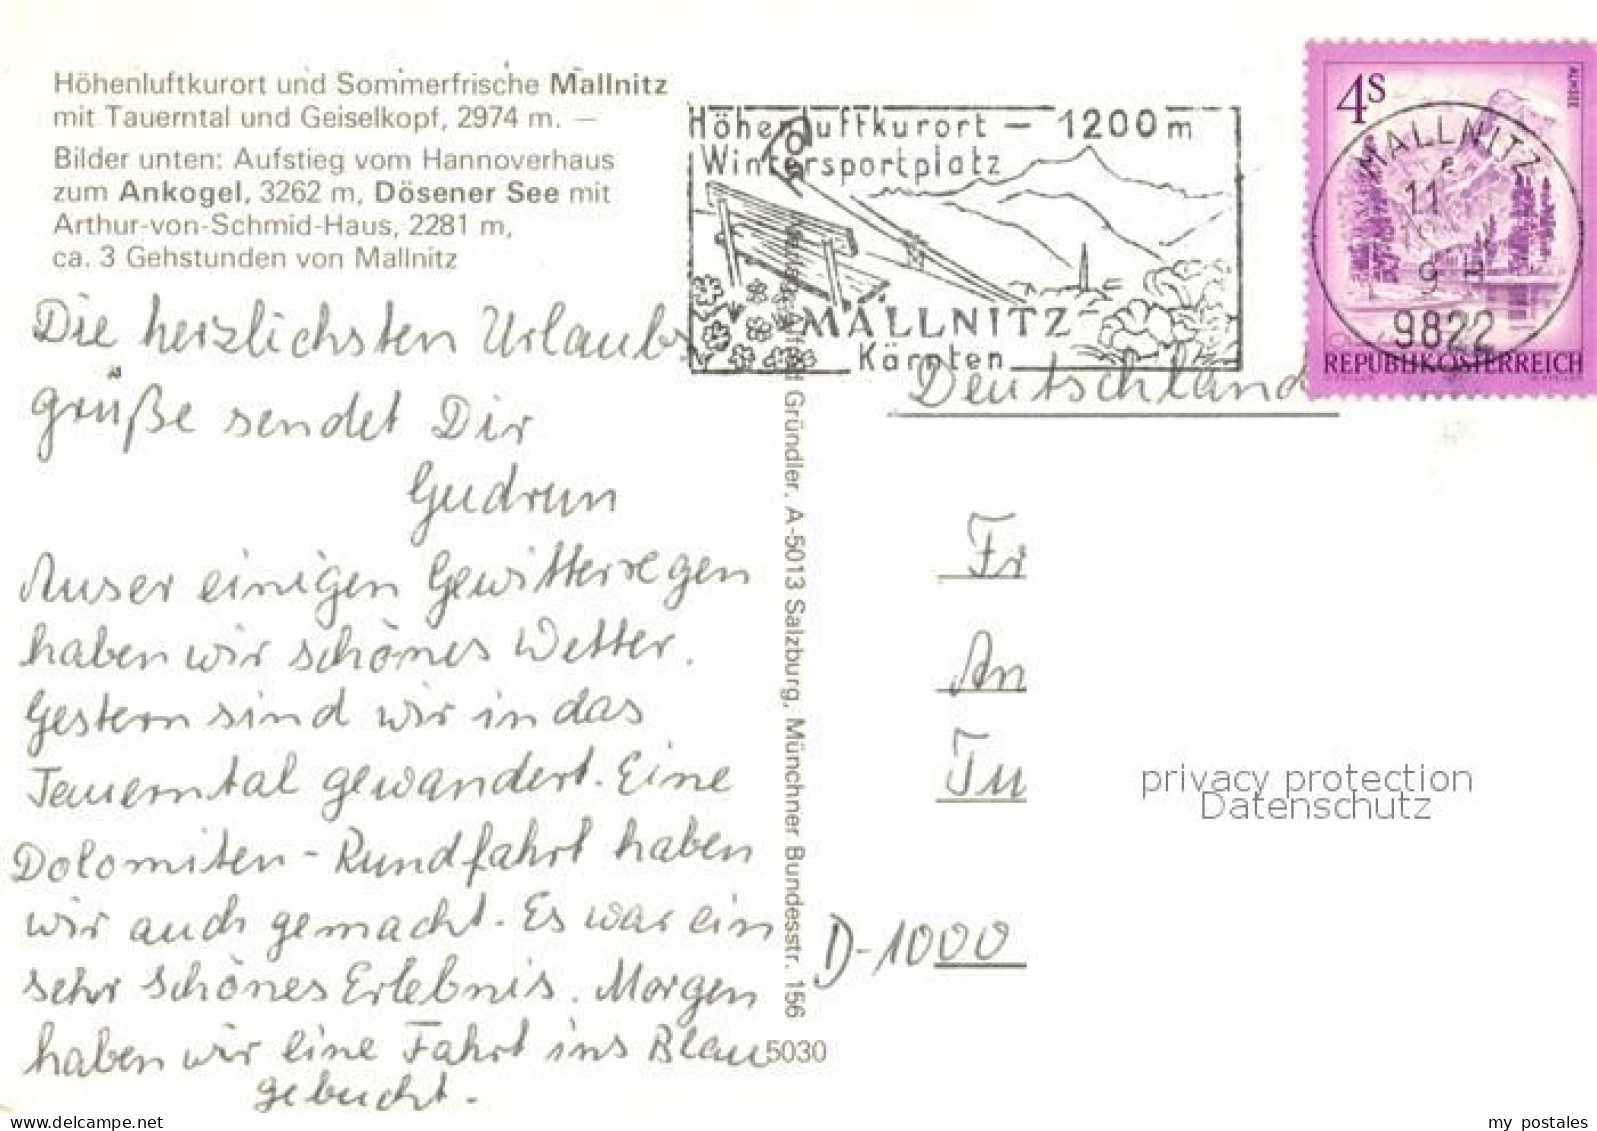 Höhenluftkurort und Sommerfrische Mallnitz
mit Tauerntal und Geiselkopf, 2974 m. —
Bilder unten: Aufstieg vom Hannoverhaus
zum Ankogel, 3262 m, Dösener See mit
Arthur-von-Schmid-Haus, 2281 m,
ca. 3 Gehstunden von Mallnitz
Die herzlichsten Urlaubs
grüße sendet Dir
Gudrun
Auser einigen Gewitterregen
haben wir schönes Wetter.
Gestern sind wir in das
Tauerntal gewandert. Eine
Dolomiten-Rundfahrt haben
wir auch gemacht. Es war ein
sehr schönes Erlebnis. Morgen
haben wir eine Fahrt ins Blau
gebucht.
Höhenluftkurort — 1200m
Wintersportplatz
MALLNITZ
Kärnten
4S
ALMSEE
REPUBLIK ÖSTERREICH
MALLNITZ
11
9822
Gründler, A-5013 Salzburg, Münchner Bundesstr. 156
5030
Deutschland
Fr
An
Tu
D-1000
privacy protection
Datenschutz
www.delcampe.net
my_postales